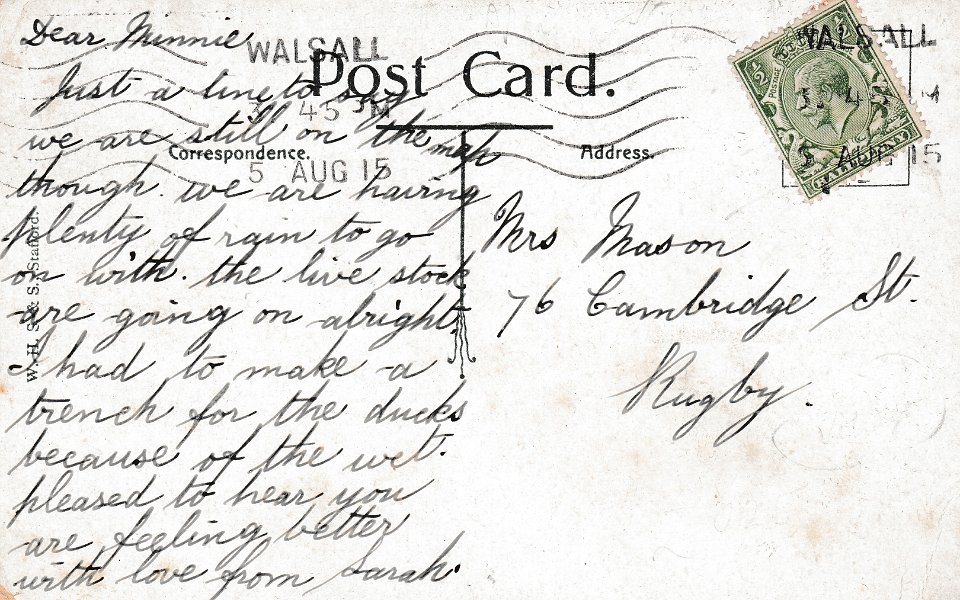 Dear Minnie
Just a line to say
we are still on the map
though. we are having
plenty of rain to go
on with. the live stock
are going on alright.
had to make a
trench for the ducks
because of the wet.
pleased to hear you
are feeling better
with love from Sarah.
WALSALL
3 45 PM
5 AUG 15
Post Card.
Correspondence.
Address.
Mrs Mason
76 Cambridge St.
Rugby.
W. H. S. & S., Stafford.
WALSALL